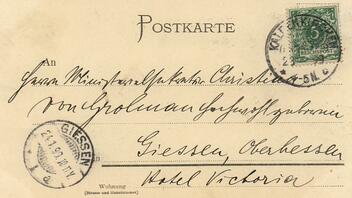 POSTKARTE
An
Herrn Ministerialsekretär Christian
von Grolman Hochwohlgeboren
in Giessen, Oberhessen
Hotel Victoria
Wohnung
(Strasse und Hausnummer)
GIESSEN
5